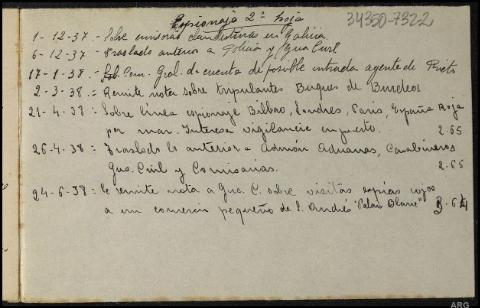 Espionaje 2ª hoja
34350-7322
1-12-37.- Sobre emisoras clandestinas en Galicia.
6-12-37.- Traslado anterior a Policia y Gua Civil
17-1-38.- Com. Gral. da cuenta de posible entrada agente de Prieto
2-3-38.- Remite nota sobre tripulantes Buques de Burdeos
21-4-38: Sobre linea espionaje Bilbao, Londres, Paris, España Roja
por mar. Interesa vigilancia en puerto. 2-65
26-4-38: Traslado lo anterior a Admón Aduanas, Carabineros
Gua. Civil y Comisarias. 2-65
24-6-38: Se remite nota a Gua. C. sobre visitas espias rojos
a un comercio pequeño de S. Andrés "Palais Blanc" 3-64
ARG